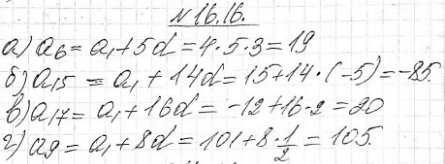 №16.16.
а) a₆ = a₁ + 5d = 4 · 5 · 3 = 19
б) a₁₅ = a₁ + 14d = 15 + 14 · (-5) = -85.
в) a₁₇ = a₁ + 16d = -12 + 16 · 2 = 20
г) a₉ = a₁ + 8d = 101 + 8 · 1/2 = 105.